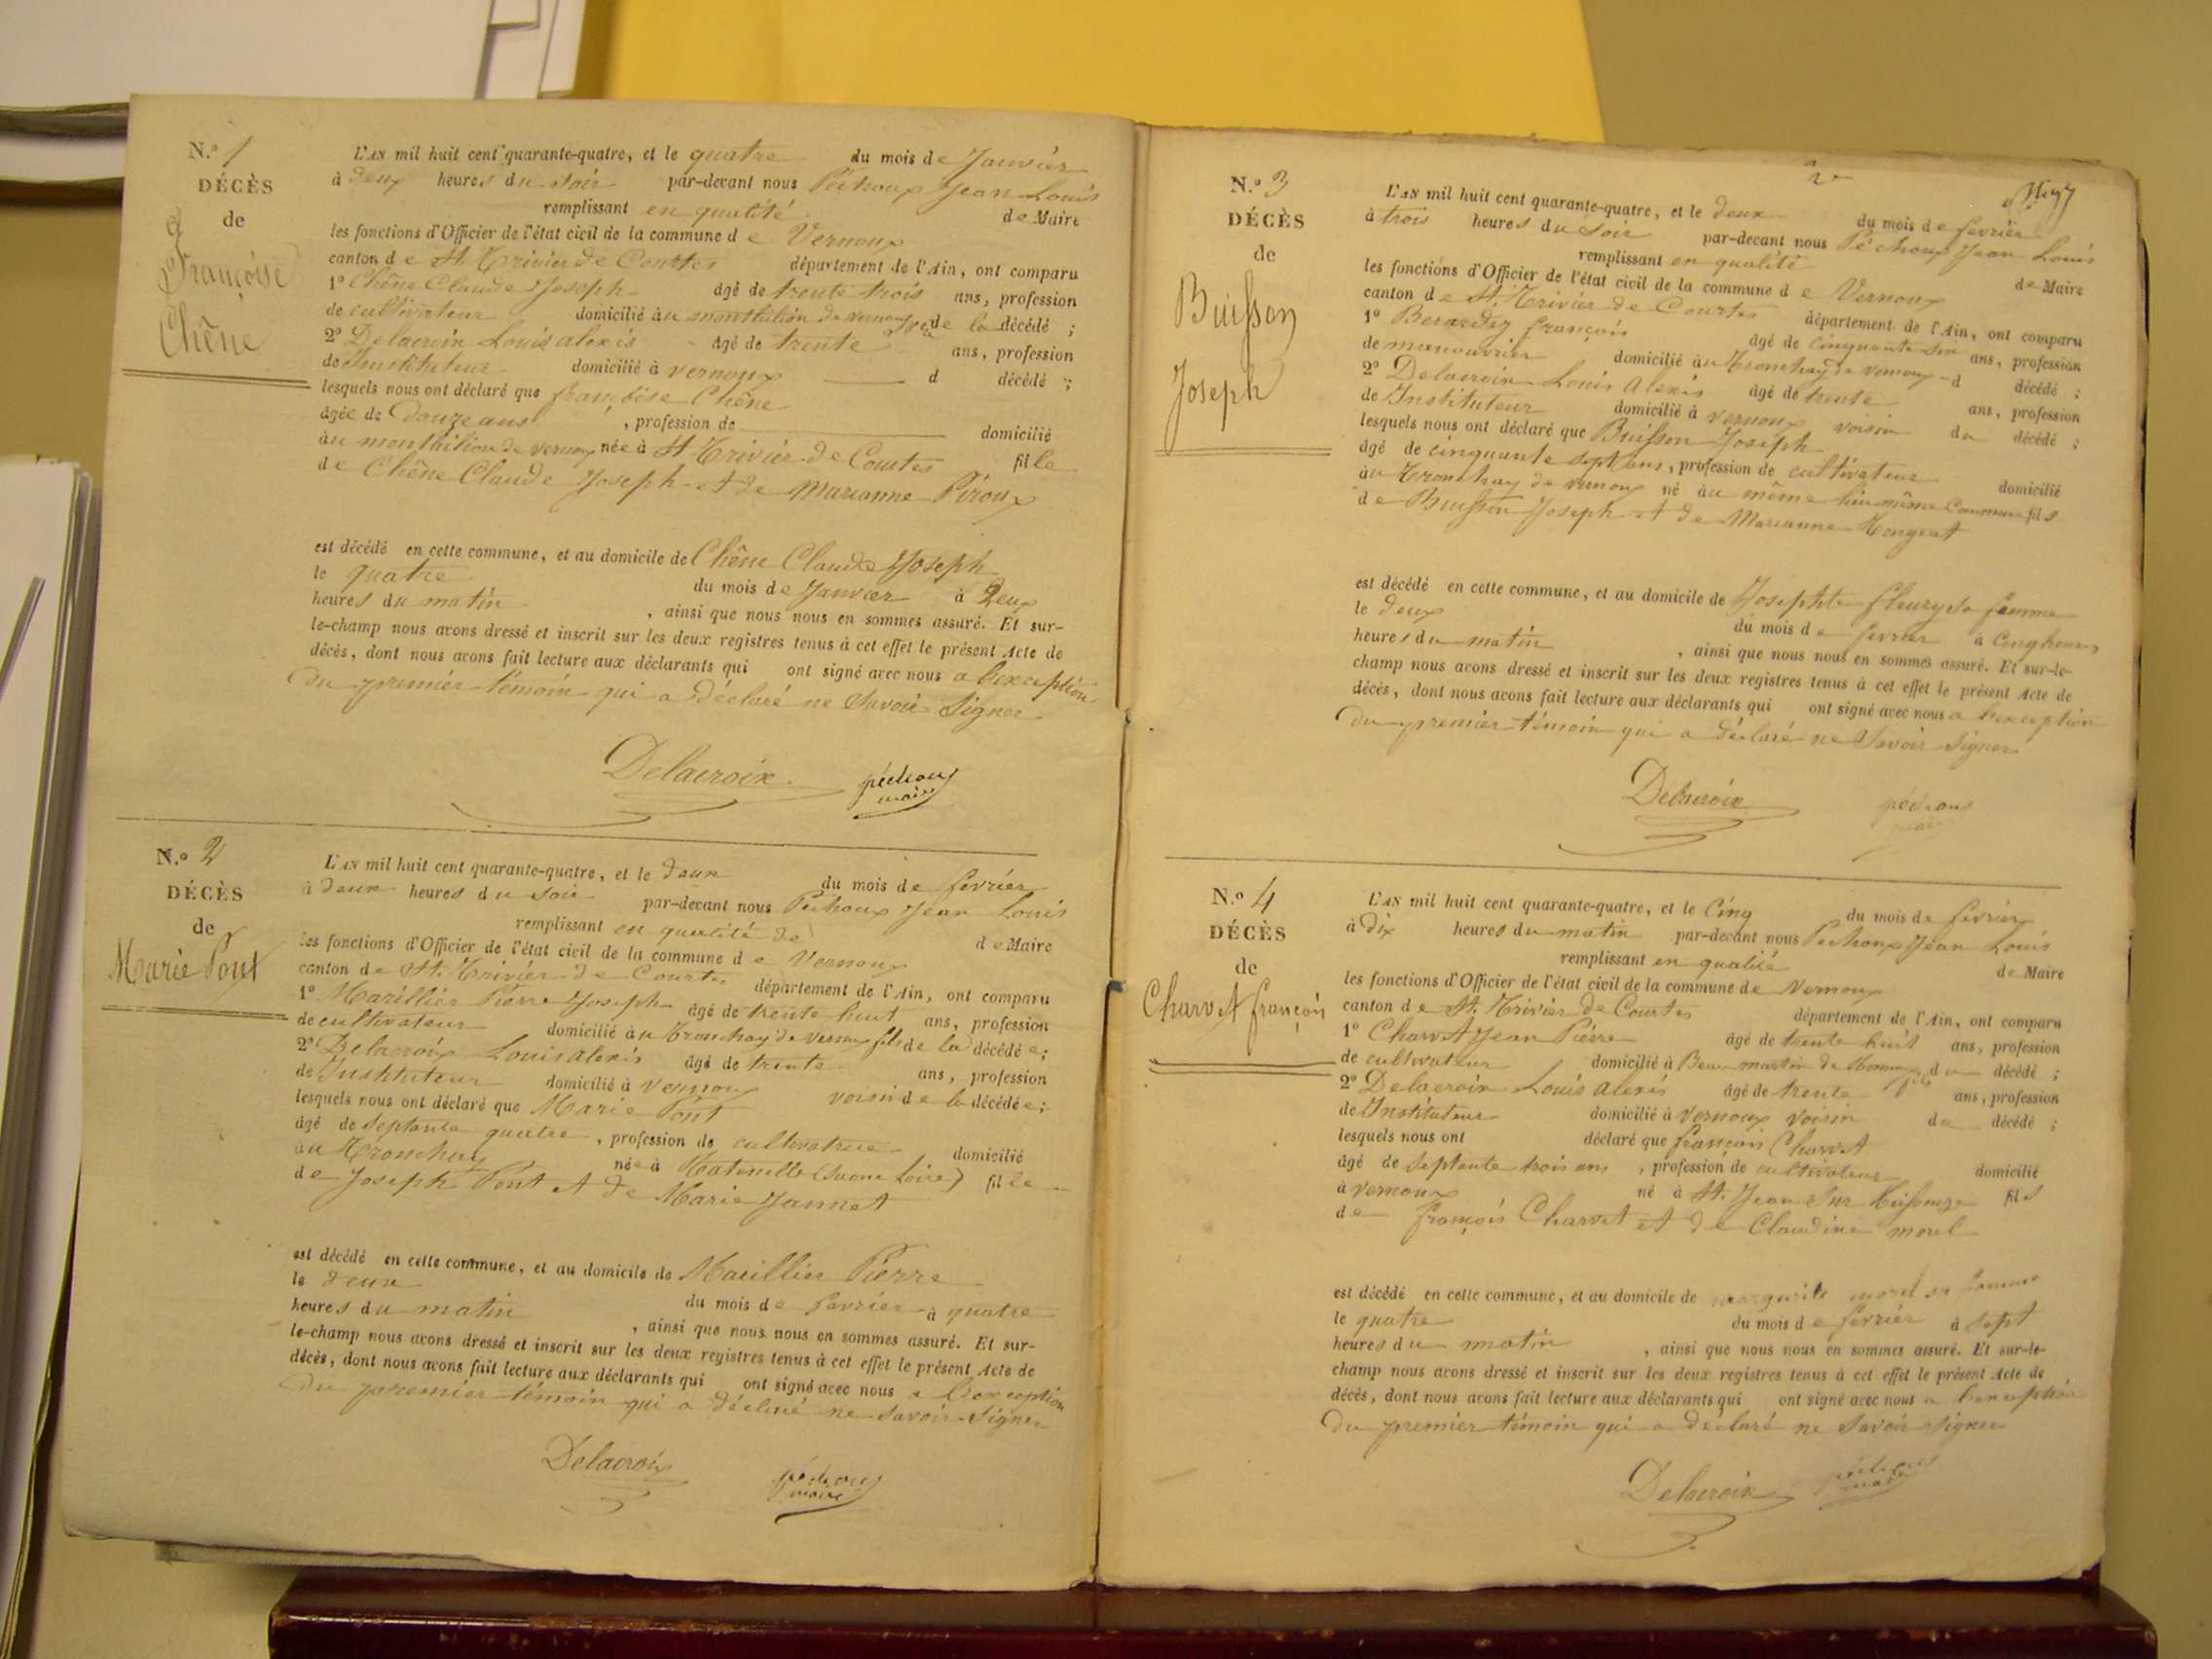 N.o 1
DÉCÈS
de
Françoise
Chêne
L'AN mil huit cent quarante-quatre, et le quatre du mois de Janvier
à deux heures du soir par-devant nous Péchoux Jean Louis
remplissant en qualité de Maire
les fonctions d'Officier de l'état civil de la commune de Vernoux
canton de St. Trivier de Courtes département de l'Ain, ont comparu
1º Chêne Claude Joseph âgé de trente trois ans, profession
de cultivateur domicilié au monthition de vernoux de la décédé ;
2º Delacroix Louis alexis âgé de trente ans, profession
de Instituteur domicilié à vernoux d décédé ;
lesquels nous ont déclaré que françoise Chêne
âgée de Douze ans , profession de domicilié
au monthition de vernoux née à St Trivier de Courtes fille
de Chêne Claude Joseph et de Marianne Piroux
est décédé en cette commune, et au domicile de Chêne Claude Joseph
le quatre du mois de Janvier à Deux
heures du matin , ainsi que nous nous en sommes assuré. Et sur-
le-champ nous avons dressé et inscrit sur les deux registres tenus à cet effet le présent Acte de
décès, dont nous avons fait lecture aux déclarants qui ont signé avec nous a l'exception
du premier témoin qui a déclaré ne Savoir Signer
Delacroix péchoux
maire
N.o 2
DÉCÈS
de
Marie Pont
L'AN mil huit cent quarante-quatre, et le deux du mois de fevrier
à deux heures du soir par-devant nous Péchoux Jean Louis
remplissant en qualité de de Maire
les fonctions d'Officier de l'état civil de la commune de Vernoux
canton de St. Trivier de Courtes département de l'Ain, ont comparu
1º Marillier Pierre Joseph âgé de trente huit ans, profession
de cultivateur domicilié au Tronchay de vernoux fils de la décédée ;
2º Delacroix Louis alexis âgé de trente ans, profession
de Instituteur domicilié à vernoux voisin de la décédée ;
lesquels nous ont déclaré que Marie Pont
âgé de Septante quatre , profession de cultivatrice domicilié
au Tronchay née à Ratenelle (Saone Loire) fille
de Joseph Pont et de Marie Jannet
est décédé en cette commune, et au domicile de Marillier Pierre
le deux du mois de fevrier à quatre
heures du matin , ainsi que nous nous en sommes assuré. Et sur-
le-champ nous avons dressé et inscrit sur les deux registres tenus à cet effet le présent Acte de
décès, dont nous avons fait lecture aux déclarants qui ont signé avec nous a l'exception
du premier témoin qui a déclaré ne savoir Signer
Delacroix péchoux
maire
2
N.o 3
DÉCÈS
de
Buisson
Joseph
L'AN mil huit cent quarante-quatre, et le deux du mois de fevrier
à trois heures du soir par-devant nous Péchoux Jean Louis
remplissant en qualité de Maire
les fonctions d'Officier de l'état civil de la commune de Vernoux
canton de St. Trivier de Courtes département de l'Ain, ont comparu
1º Berardey françois âgé de cinquante six ans, profession
de manouvrier domicilié au Tronchay de vernoux d décédé ;
2º Delacroix Louis Alexis âgé de trente ans, profession
de Instituteur domicilié à vernoux voisin du décédé ;
lesquels nous ont déclaré que Buisson Joseph
âgé de cinquante sept ans, profession de cultivateur domicilié
au Tronchay de vernoux né au même lieu même Commune fils
de Buisson Joseph et de Marianne Rongeat
est décédé en cette commune, et au domicile de Josephte fleury sa femme
le deux du mois de fevrier à Cinq heures
heures du matin , ainsi que nous nous en sommes assuré. Et sur-le-
champ nous avons dressé et inscrit sur les deux registres tenus à cet effet le présent Acte de
décès, dont nous avons fait lecture aux déclarants qui ont signé avec nous a l'exception
du premier témoin qui a déclaré ne Savoir Signer
Delacroix péchoux
maire
N.o 4
DÉCÈS
de
Charvet françois
L'AN mil huit cent quarante-quatre, et le Cinq du mois de fevrier
à Dix heures du matin par-devant nous Péchoux Jean Louis
remplissant en qualité de Maire
les fonctions d'Officier de l'état civil de la commune de Vernoux
canton de St. Trivier de Courtes département de l'Ain, ont comparu
1º Charvet Jean Pierre âgé de trente huit ans, profession
de cultivateur domicilié à du décédé ;
2º Delacroix Louis Alexis âgé de trente ans, profession
de Instituteur domicilié à Vernoux voisin du décédé ;
lesquels nous ont déclaré que françois Charvet
âgé de Septante trois ans , profession de cultivateur domicilié
à vernoux né à St. Jean Sur Reissouze fils
de françois Charvet et de Claudine morel
est décédé en cette commune, et au domicile de marguerite morel sa femme
le quatre du mois de fevrier à Sept
heures du matin , ainsi que nous nous en sommes assuré. Et sur-le-
champ nous avons dressé et inscrit sur les deux registres tenus à cet effet le présent Acte de
décès, dont nous avons fait lecture aux déclarants qui ont signé avec nous a l'exception
du premier témoin qui a déclaré ne Savoir Signer
Delacroix péchoux
maire